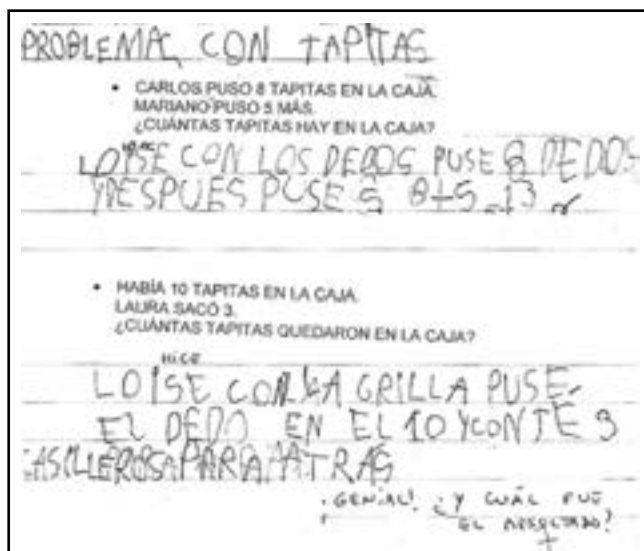 PROBLEMA CON TAPITAS
• CARLOS PUSO 8 TAPITAS EN LA CAJA.
MARIANO PUSO 5 MÁS.
¿CUÁNTAS TAPITAS HAY EN LA CAJA?
LO ISE CON LOS DEDOS PUSE 8 DEDOS
Y DESPUES PUSE 5 8+5=13
• HABÍA 10 TAPITAS EN LA CAJA.
LAURA SACÓ 3.
¿CUÁNTAS TAPITAS QUEDARON EN LA CAJA?
HICE
LO ISE CON LA GRILLA PUSE
EL DEDO EN EL 10 Y CONTÉ 3
CASILLEROS PARA ATRAS
¡GENIAL! ¿Y CUÁL FUE
EL RESULTADO?